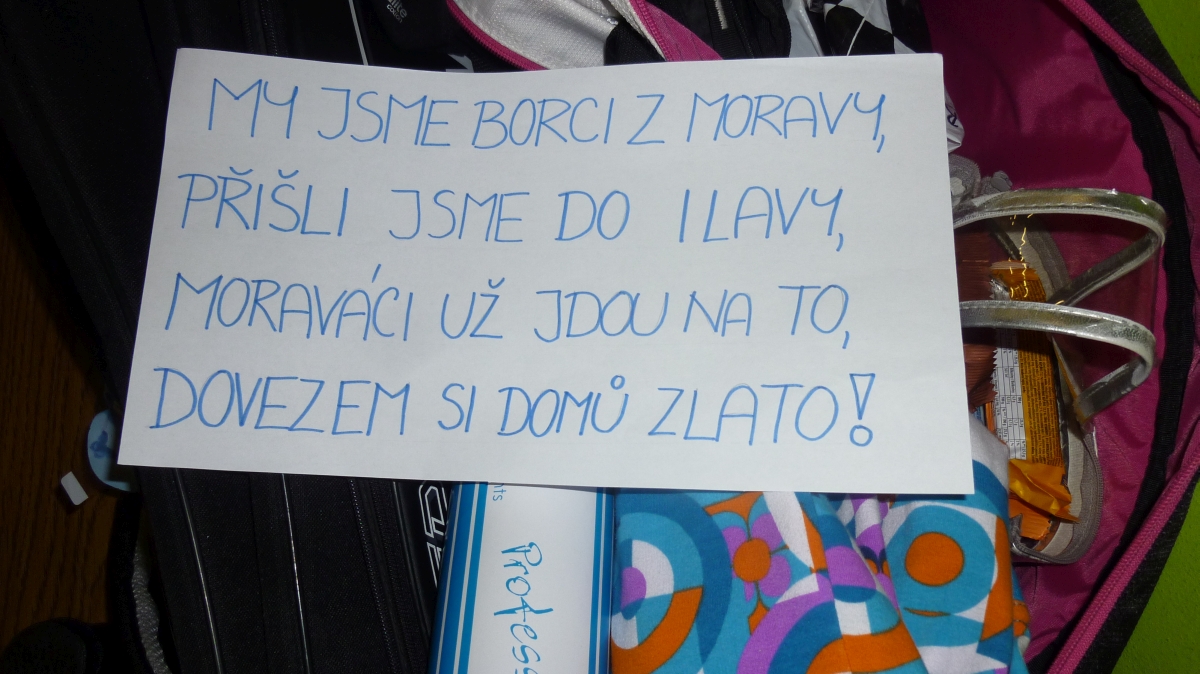 MY JSME BORCI Z MORAVY,
PŘIŠLI JSME DO ILAVY,
MORAVÁCI UŽ JDOU NA TO,
DOVEZEM SI DOMŮ ZLATO!
Profess